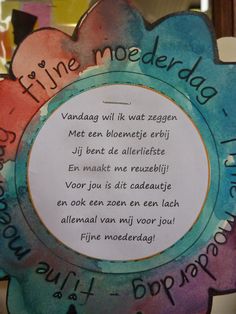 fijne moederdag
Vandaag wil ik wat zeggen
Met een bloemetje erbij
Jij bent de allerliefste
En maakt me reuzeblij!
Voor jou is dit cadeautje
en ook een zoen en een lach
allemaal van mij voor jou!
Fijne moederdag!
fijne moederdag - fijne moederdag -